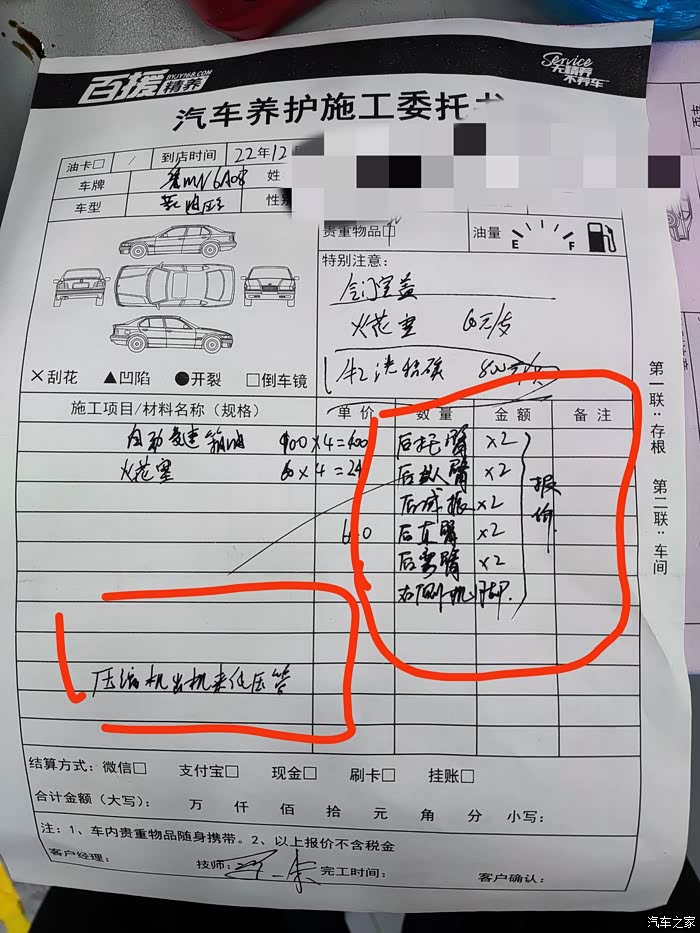 百援精养
BYJY168.COM
Service
无精养
不养车
汽车养护施工委托
油卡□ / 到店时间 22年12
车牌 姓
车型 性别
贵重物品□ 油量 E F
特别注意：
气门室盖
火花塞 60元/支
×刮花 ▲凹陷 ●开裂 □倒车镜
施工项目/材料名称（规格） 单价 数量 金额 备注
自动变速箱油 100×4=400 后托臂 ×2
火花塞 60×4=24 后叉臂 ×2
后减振 ×2
后直臂 ×2
后弯臂 ×2
右侧机脚
报价
压缩机出机来低压管
结算方式：微信□ 支付宝□ 现金□ 刷卡□ 挂账□
合计金额（大写）： 万 仟 佰 拾 元 角 分 小写：
注：1、车内贵重物品随身携带。2、以上报价不含税金
客户经理： 技师： 完工时间： 客户确认：
第一联：存根 第二联：车间
汽车之家